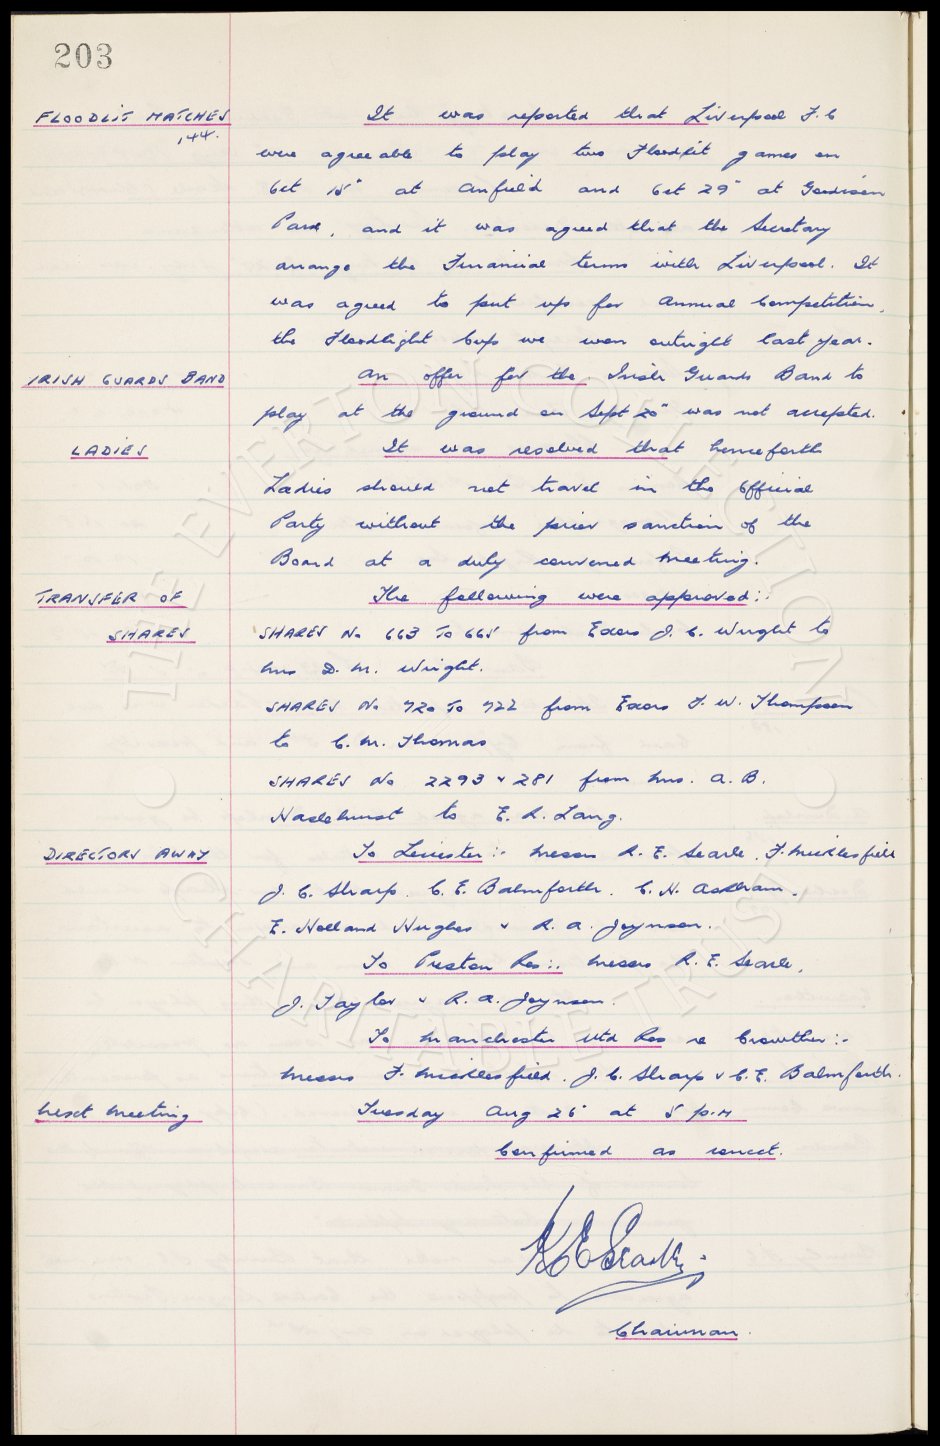 203
FLOODLIT MATCHES
144.
It was reported that Liverpool F.C
were agreeable to play two Floodlit games on
Oct 15" at Anfield and Oct 29" at Goodison
Park, and it was agreed that the Secretary
arrange the Financial terms with Liverpool. It
was agreed to put up for Annual Competition,
the Floodlight Cup we won outright last year.
IRISH GUARDS BAND
An offer for the Irish Guards Band to
play at the ground on Sept 20" was not accepted.
LADIES
It was resolved that henceforth
Ladies should not travel in the Official
Party without the prior sanction of the
Board at a duly convened meeting.
TRANSFER OF
SHARES
The following were approved:-
SHARES No 663 To 665 from Exors J. C. Wright to
Mrs D. M. Wright.
SHARES No 720 To 722 from Exors F. W. Thompson
to C. M. Thomas
SHARES No 2293 & 281 from Mrs. A. B.
Haslehurst to E. R. Lang.
DIRECTORS AWAY
To Leicester:- Messrs R. E. Searle, F. Micklesfield
J. C. Sharp. C. E. Balmforth. C. H. Askham.
E. Holland Hughes & R. A. Joynson.
To Preston Res:- Messrs R. E. Searle,
J. Taylor & R. A. Joynson.
To Manchester Utd Res re Crowther:-
Messrs F. Micklesfield. J. C. Sharp & C. E. Balmforth.
Next Meeting
Tuesday Aug 26" at 5 p.m
Confirmed as correct.
R E Searle
Chairman.
THE EVERTON COLLECTION
CHARITABLE TRUST